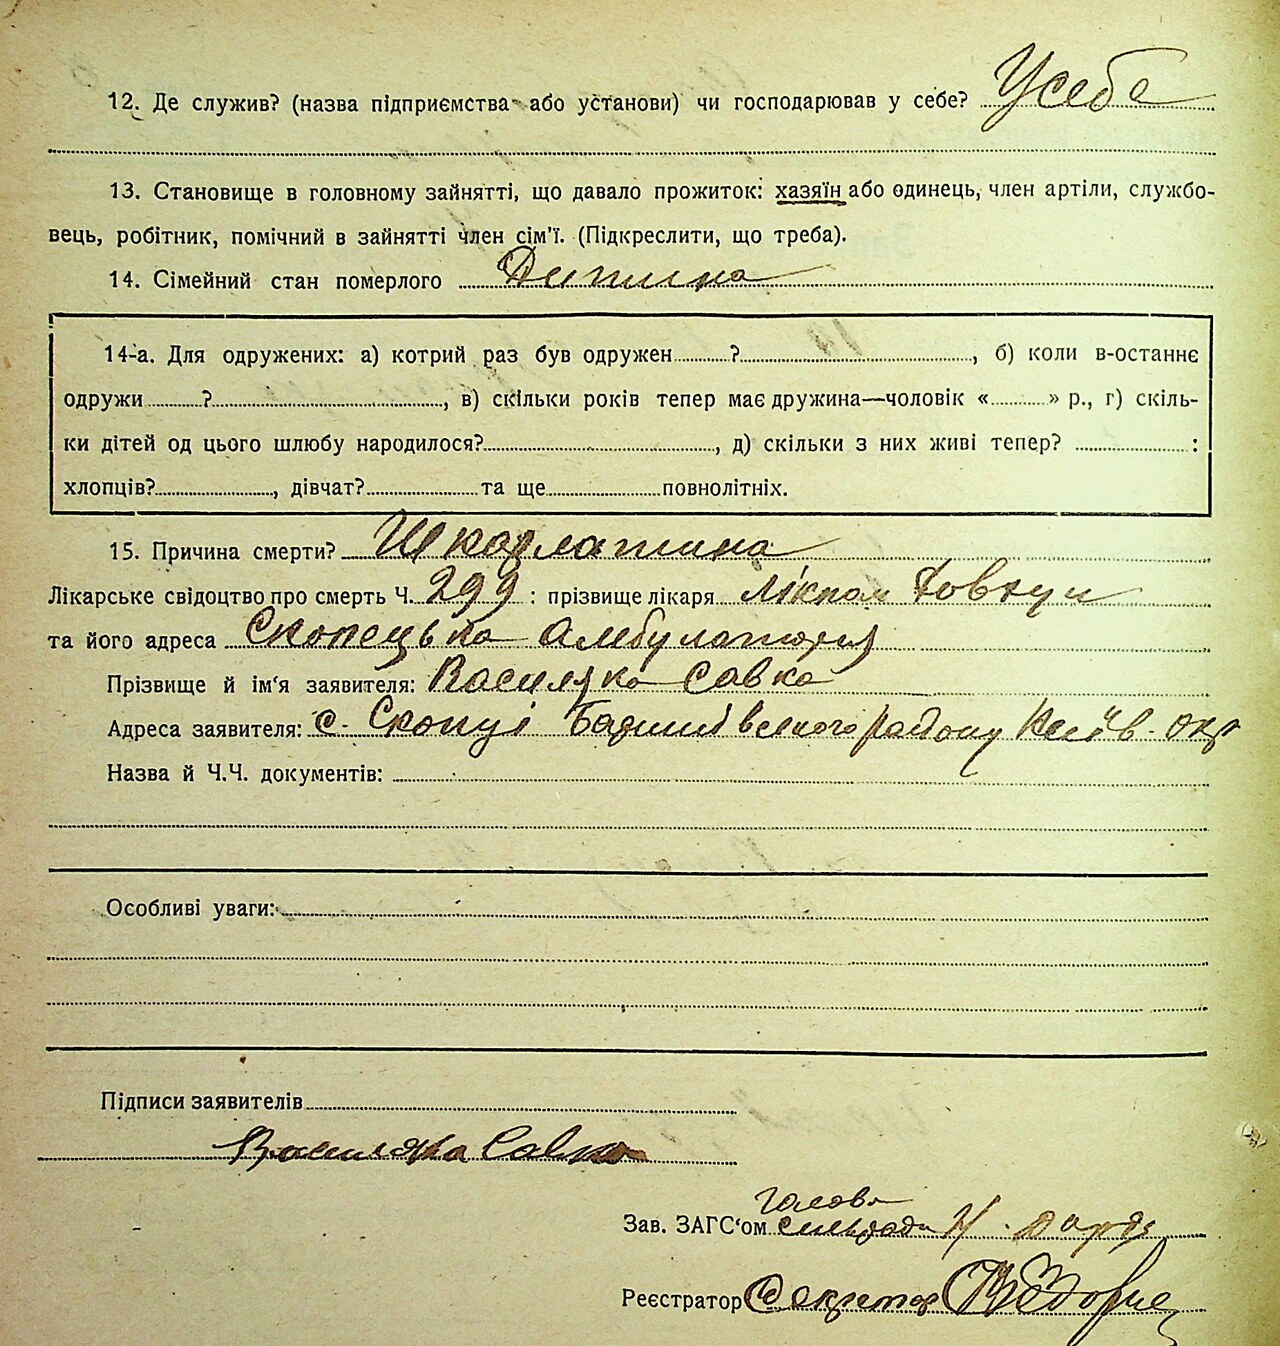 12. Де служив? (назва підприємства або установи) чи господарював у себе? У себе
13. Становище в головному зайнятті, що давало прожиток: хазяїн або одинець, член артіли, службо-
вець, робітник, помічний в зайнятті член сім'ї. (Підкреслити, що треба).
14. Сімейний стан померлого Дитина
14-а. Для одружених: а) котрий раз був одружен ? , б) коли в-останнє
одружи ? , в) скільки років тепер має дружина—чоловік « » р., г) скіль-
ки дітей од цього шлюбу народилося? , д) скільки з них живі тепер? :
хлопців? , дівчат? та ще повнолітніх.
15. Причина смерти? Шкарлатина
Лікарське свідоцтво про смерть Ч. 299 : прізвище лікаря Лікпом Довгун
та його адреса Скопецька Амбулаторія
Прізвище й ім'я заявителя: Василяка Савка
Адреса заявителя: с. Скопці Баришівського району Київ. окр
Назва й Ч.Ч. документів:
Особливі уваги:
Підписи заявителів
Василяка Савка
голова
Зав. ЗАГС'ом сільради
Реєстратор Секретар